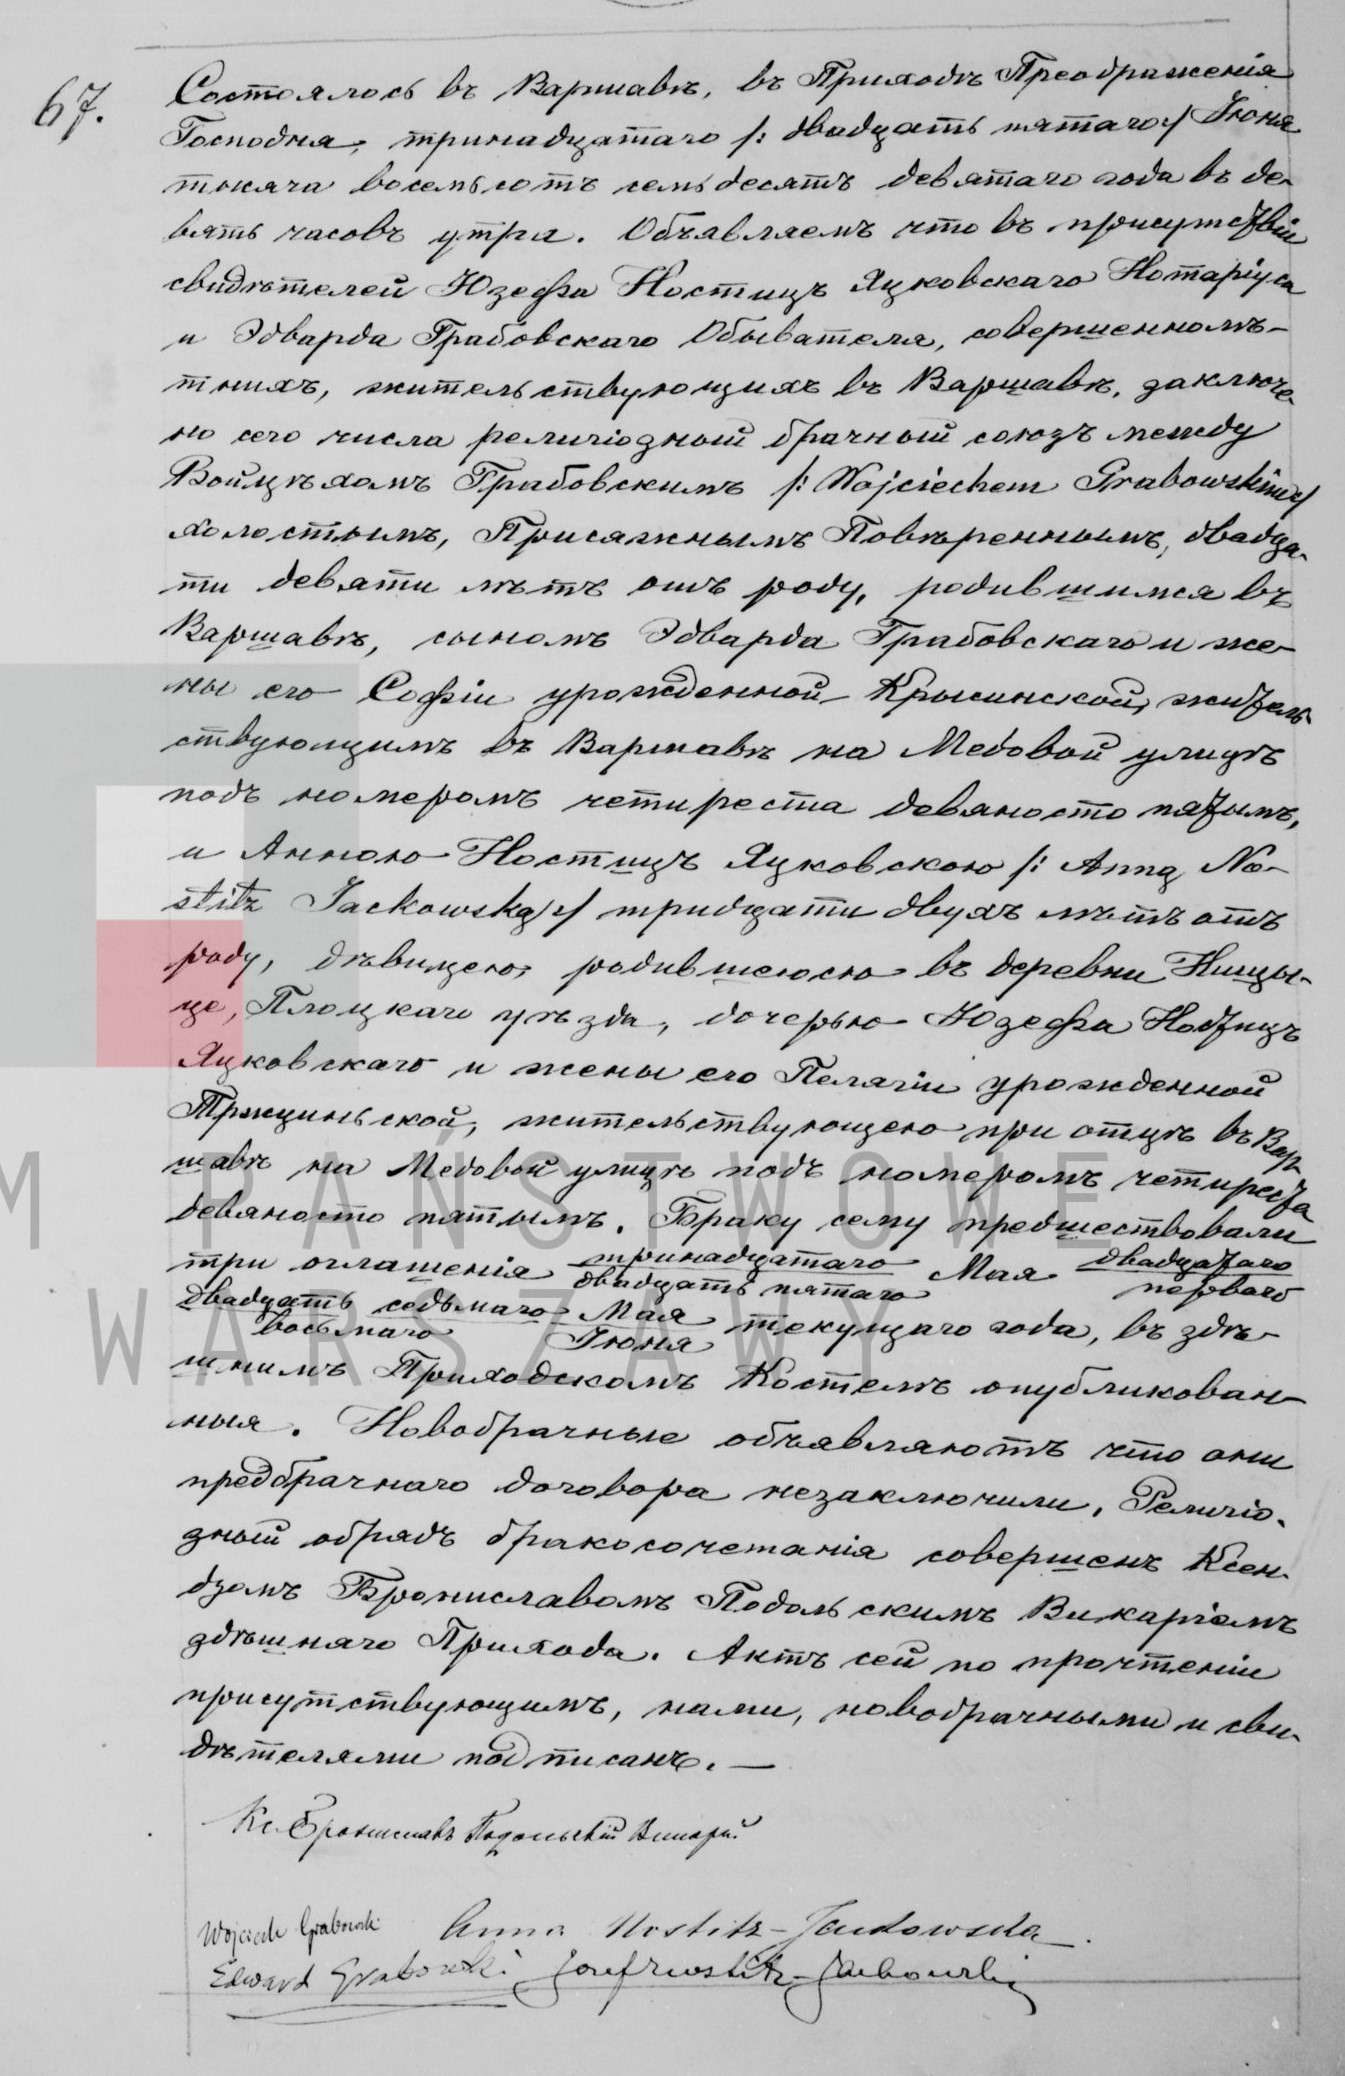 67.
Состоялось въ Варшавѣ, въ Приходѣ Преображенія
Господня, тринадцатаго /: двадцать пятаго :/ Іюня
тысяча восемьсотъ семьдесятъ девятаго года въ де-
вять часовъ утра. Объявляемъ что въ присутствіи
свидѣтелей Юзефа Ностицъ Яцковскаго Нотаріуса
и Эдварда Грабовскаго Обывателя, совершеннолѣ-
тнихъ, жительствующихъ въ Варшавѣ, заключе-
но сего числа религіозный брачный союзъ между
Войцѣхомъ Грабовскимъ /: Wojciechem Grabowskim :/
холостымъ, Присяжнымъ Повѣреннымъ, двадца-
ти девяти лѣтъ отъ роду, родившимся въ
Варшавѣ, сыномъ Эдварда Грабовскаго и же-
ны его Софіи урожденной Крысинской, житель-
ствующимъ въ Варшавѣ на Медовой улицѣ
подъ номеромъ четиреста девяносто пятымъ,
и Анною Ностицъ Яцковскою /: Anną No-
stitz Jackowską :/ тридцати двухъ лѣтъ отъ
роду, дѣвицею, родившеюся въ деревни Нищы-
це, Плоцкаго уѣзда, дочерью Юзефа Ностицъ
Яцковскаго и жены его Пелагіи урожденной
Тржциньской, жительствующею при отцѣ въ Вар-
шавѣ на Медовой улицѣ подъ номеромъ четиреста
девяносто пятымъ. Браку сему предшествовали
три оглашенія тринадцатаго Мая двадцатаго
двадцать пятаго перваго
двадцать седьмаго Мая текущаго года, въ здѣ-
восьмаго Іюня
шнимъ Приходскомъ Костелѣ опубликован-
ныя. Новобрачные объявляютъ что они
предбрачнаго договора незаключили. Религіо-
зный обрядъ бракосочетанія совершенъ Ксен-
дзомъ Брониславомъ Подольскимъ Викаріемъ
здѣшняго Прихода. Актъ сей по прочтеніи
присутствующимъ, нами, новобрачными и сви-
дѣтелями подписанъ. —
Кс Брониславъ Подольскій Викарій
Wojciech Grabowski Anna Nostitz-Jackowska.
Edward Grabowski Józef Nostitz-Jackowski
M PAŃSTWOWE
WARSZAWY